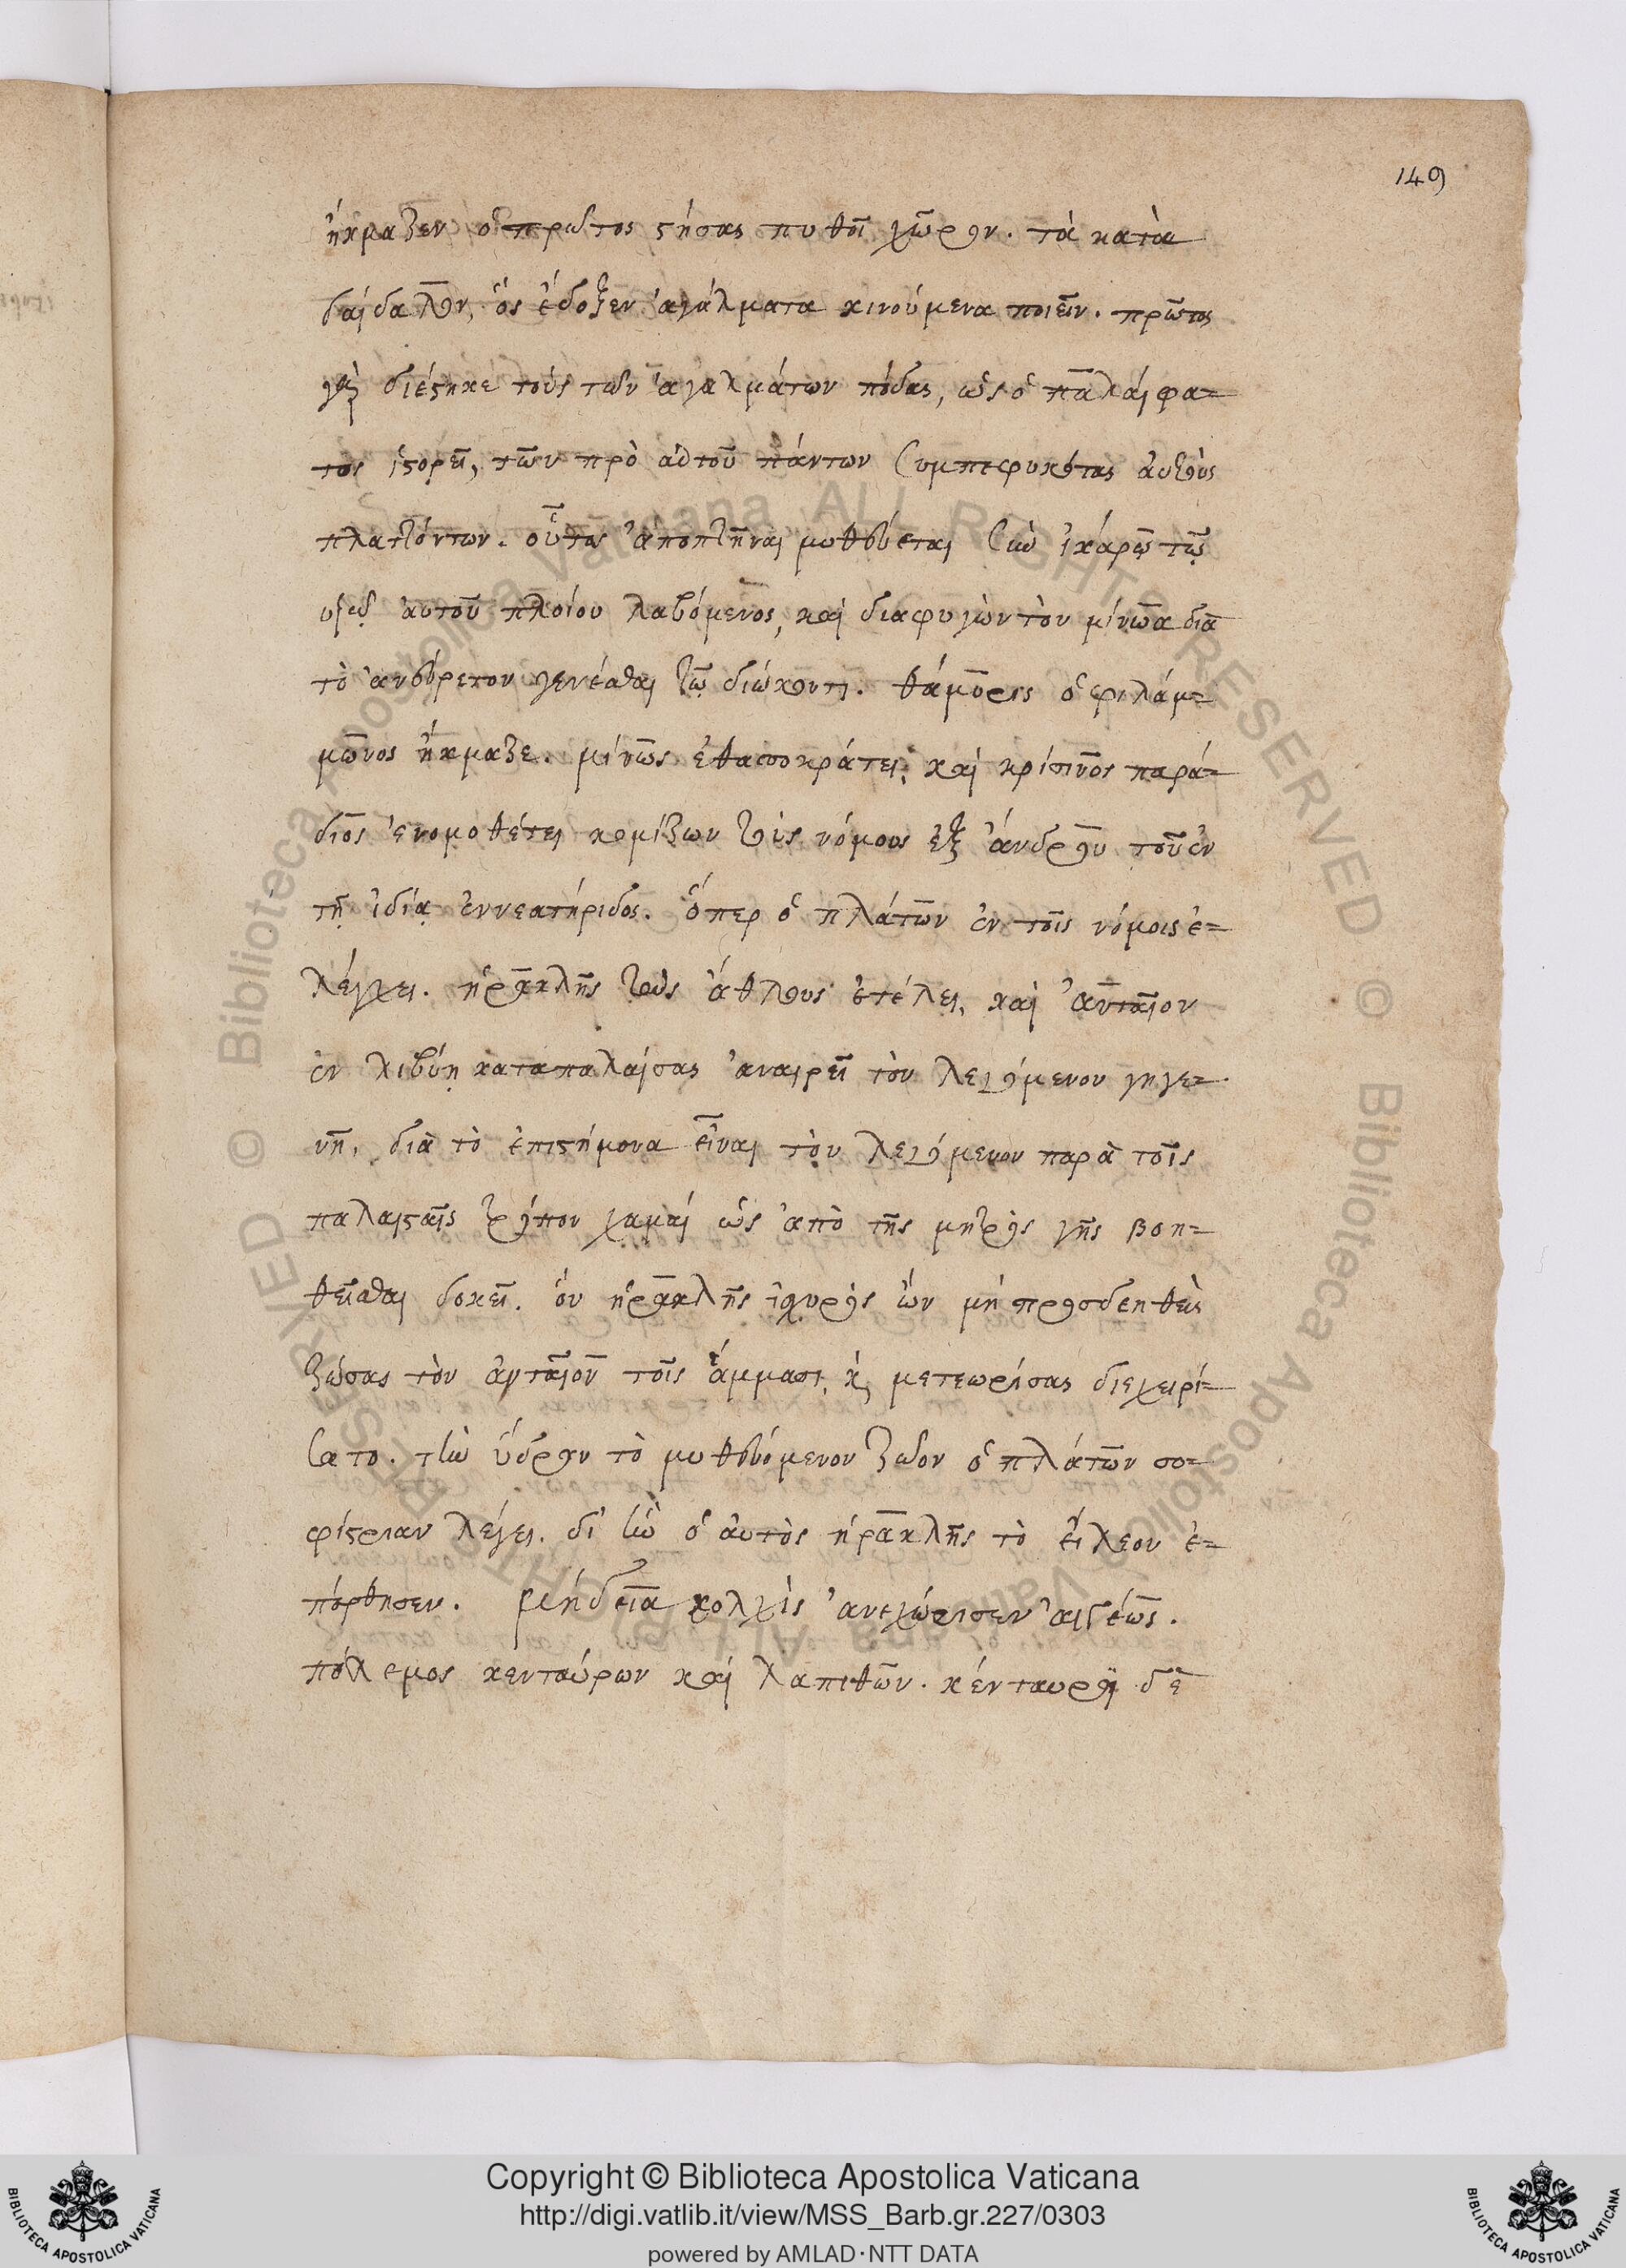 149
ἤκμαζεν ὁ πρῶτος στήσας πυθοῖ χῶρον. τὰ κατὰ
δαίδαλον, ὃς ἔδοξεν ἀγάλματα κινούμενα ποιεῖν. πρῶτος
γὰρ διέστηκε τοὺς τῶν ἀγαλμάτων πόδας, ὡς ὁ παλαίφα=
τος ἱστορεῖ, τῶν πρὸ αὐτοῦ πάντων συμπεφυκότας αὐτοὺς
πλαττόντων. οὗτος ἀποπτῆναι μυθεύεται σὺν ἰκάρῳ τῷ
υἱῷ αὐτοῦ πλοίου λαβόμενος, καὶ διαφυγὼν τὸν μίνωα διὰ
τὸ ἀνεύρετον γενέσθαι τῷ διώκοντι. θάμυρις ὁ φιλάμ=
μωνος ἤκμαζε. μίνως ἐθασσοκράτει, καὶ κρίσινος παρά=
διος ἐνομοθέτει κομίζων τοὺς νόμους ἐξ ἄνδρου τοῦ ἐν
τῇ ἰδίᾳ ἐννεατηρίδος. ὅπερ ὁ πλάτων ἐν τοῖς νόμοις ἐ=
λέγχει. ἡρακλῆς τοὺς ἄθλους ἐτέλει, καὶ ἀνταῖον
ἐν λιβύῃ καταπαλαίσας ἀναιρεῖ τὸν λεγόμενον γηγε=
νῆ, διὰ τὸ ἐπιστήμονα εἶναι τὸν λεγόμενον παρὰ τοῖς
παλαισταῖς τρόπον χαμαί ὡς ἀπὸ τῆς μητρὸς γῆς βοη=
θεῖσθαι δοκεῖ. ὃν ἡρακλῆς ἰσχυρὸς ὢν μὴ προσδεηθεὶς
ζώσας τὸν ἀνταῖον τοῖς ἅμμασι, καὶ μετεωρίσας διεχειρί=
σατο. τὴν ὕδραν τὸ μυθευόμενον ζῶον ὁ πλάτων σο=
φίστριαν λέγει. δι' ἣν ὁ αὐτὸς ἡρακλῆς τὸ εἴλεον ἐ=
πόρθησεν. μήδεια κολχὶς ἀνεχώρισεν αἰγέως.
πόλεμος κενταύρων καὶ λαπιθῶν. κένταυροι δὲ
Copyright © Biblioteca Apostolica Vaticana
http://digi.vatlib.it/view/MSS_Barb.gr.227/0303
powered by AMLAD·NTT DATA